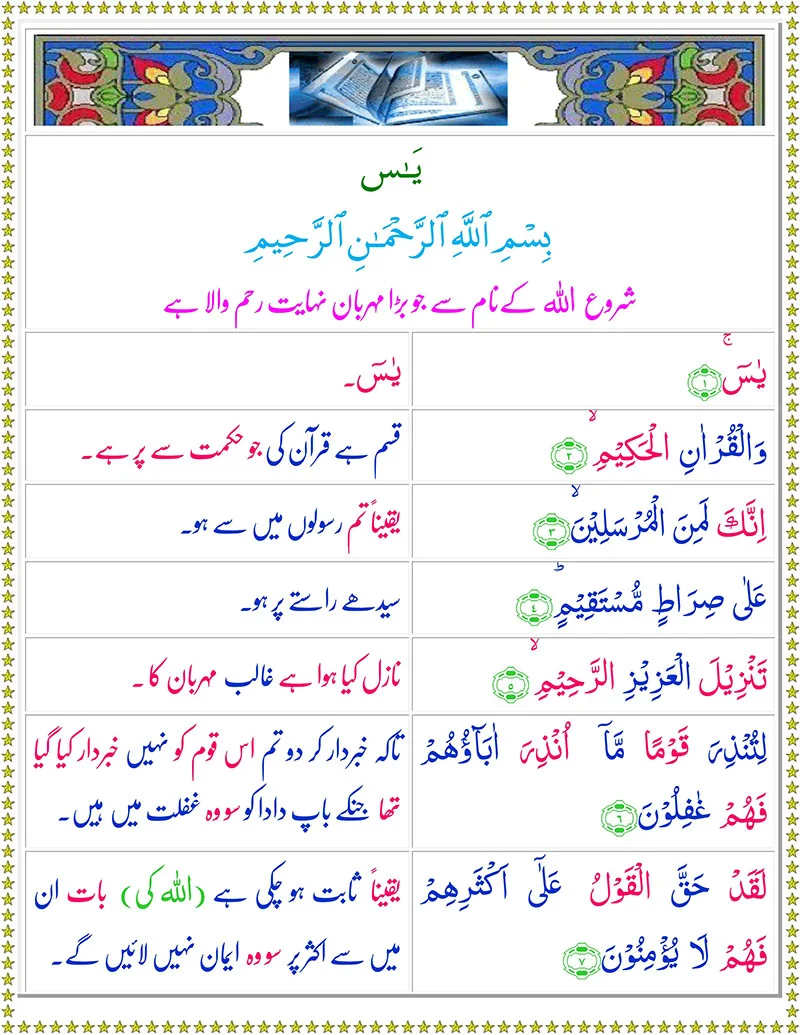 یٰس
بِسْمِ ٱللَّهِ ٱلرَّحْمَـٰنِ ٱلرَّحِيمِ
شروع اللہ کے نام سے جو بڑا مہربان نہایت رحم والا ہے
یٰسٓ ۚ ﴿۱﴾
یٰسٓ۔
وَالْقُرْاٰنِ الْحَكِیْمِ ۙ ﴿۲﴾
قسم ہے قرآن کی جو حکمت سے پر ہے۔
اِنَّكَ لَمِنَ الْمُرْسَلِیْنَ ۙ ﴿۳﴾
یقیناً تم رسولوں میں سے ہو۔
عَلٰی صِرَاطٍ مُّسْتَقِیْمٍ ؕ ﴿۴﴾
سیدھے راستے پر ہو۔
تَنْزِیْلَ الْعَزِیْزِ الرَّحِیْمِ ۙ ﴿۵﴾
نازل کیا ہوا ہے غالب مہربان کا۔
لِتُنْذِرَ قَوْمًا مَّاۤ اُنْذِرَ اٰبَآؤُهُمْ
فَهُمْ غٰفِلُوْنَ ﴿۶﴾
تاکہ خبردار کر دو تم اس قوم کو نہیں خبردار کیا گیا
تھا جنکے باپ دادا کو سو وہ غفلت میں ہیں۔
لَقَدْ حَقَّ الْقَوْلُ عَلٰۤی اَكْثَرِهِمْ
فَهُمْ لَا یُؤْمِنُوْنَ ﴿۷﴾
یقیناً ثابت ہو چکی ہے (اللہ کی) بات ان
میں سے اکثر پر سو وہ ایمان نہیں لائیں گے۔